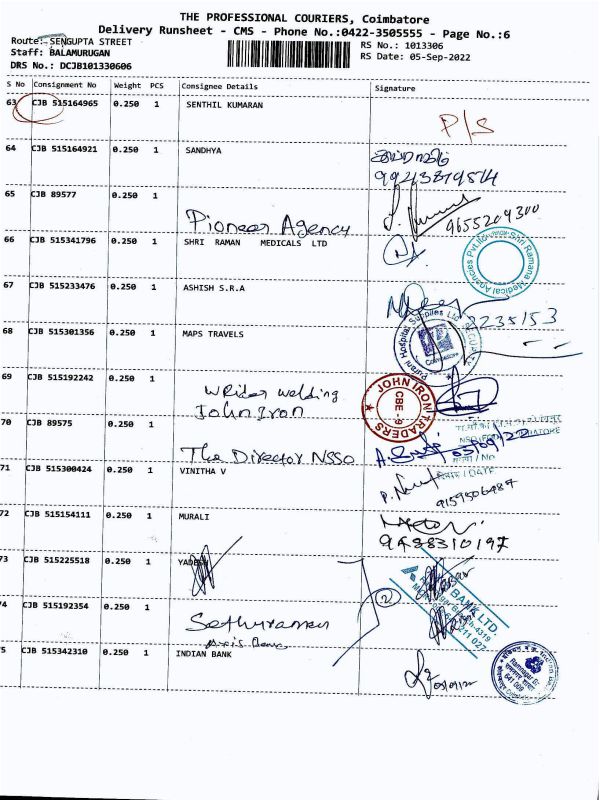 THE PROFESSIONAL COURIERS, Coimbatore
Delivery Runsheet - CMS - Phone No.:0422-3505555 - Page No.:6
Route: SENGUPTA STREET
Staff: BALAMURUGAN
DRS No.: DCJB101330606
RS No.: 1013306
RS Date: 05-Sep-2022
S No Consignment No Weight PCS Consignee Details Signature
63 CJB 515164965 0.250 1 SENTHIL KUMARAN
P/S
64 CJB 515164921 0.250 1 SANDHYA
65 CJB 89577 0.250 1
Pioneer Agency
9655209300
66 CJB 515341796 0.250 1 SHRI RAMAN MEDICALS LTD
Shri Ramana Medical Agencies Pvt.Ltd
67 CJB 515233476 0.250 1 ASHISH S.R.A
2235153
68 CJB 515301356 0.250 1 MAPS TRAVELS
Purani Hospital Supplies
Coimbatore
69 CJB 515192242 0.250 1
welding
John Iron
JOHN IRON TRADERS
CBE - 9
70 CJB 89575 0.250 1
The Director NSSO
71 CJB 515300424 0.250 1 VINITHA V
/ DATE
72 CJB 515154111 0.250 1 MURALI
9488310197
73 CJB 515225518 0.250 1
2
BANK LTD.
74 CJB 515192354 0.250 1
Sethuraman
Axis Bank
75 CJB 515342310 0.250 1 INDIAN BANK
641 009